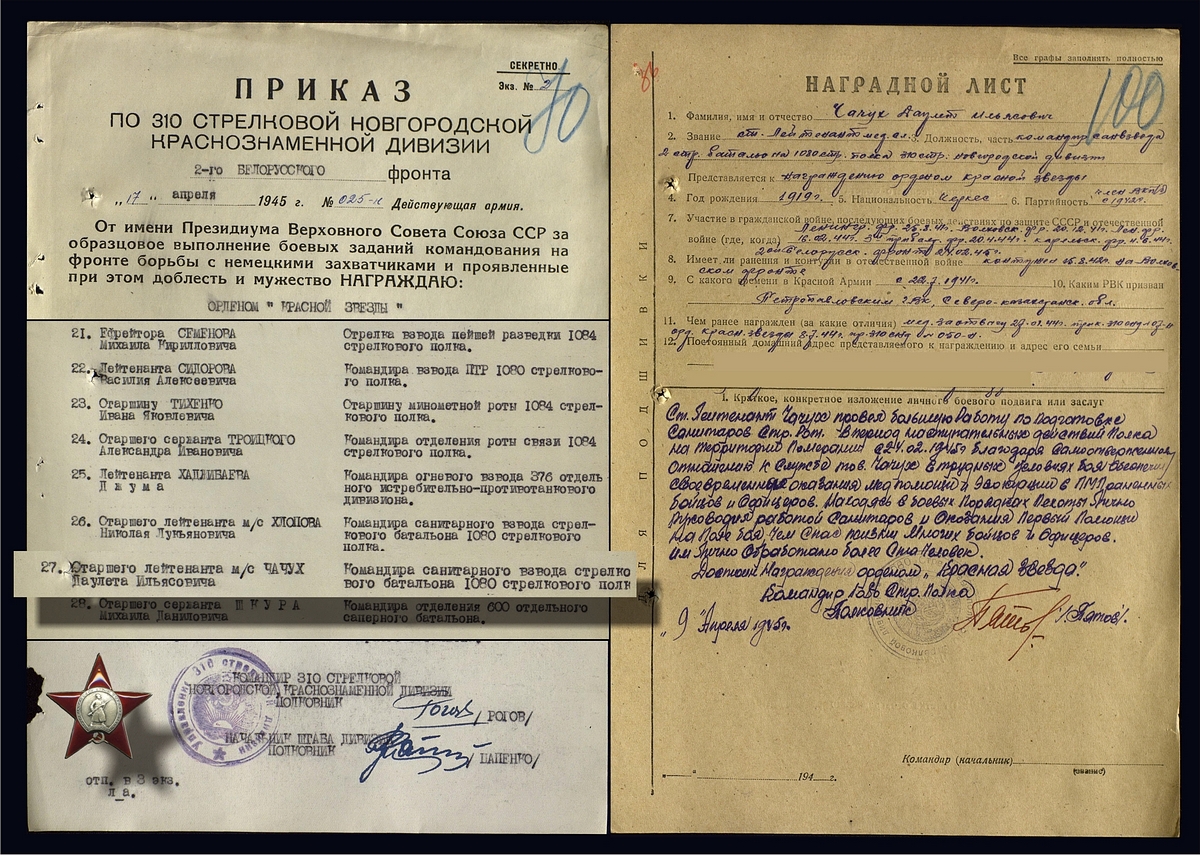 СЕКРЕТНО
Экз. № 2
80
ПРИКАЗ
ПО 310 СТРЕЛКОВОЙ НОВГОРОДСКОЙ
КРАСНОЗНАМЕННОЙ ДИВИЗИИ
2-го БЕЛОРУССКОГО фронта
„17" апреля 1945 г. № 025-н Действующая армия.
От имени Президиума Верховного Совета Союза ССР за
образцовое выполнение боевых заданий командования на
фронте борьбы с немецкими захватчиками и проявленные
при этом доблесть и мужество НАГРАЖДАЮ:
ОРДЕНОМ " КРАСНОЙ ЗВЕЗДЫ "
21. Ефрейтора СЕМЕНОВА Стрелка взвода пешей разведки 1084
Михаила Кирилловича стрелкового полка.
22. Лейтенанта СИДОРОВА Командира взвода ПТР 1080 стрелково-
Василия Алексеевича го полка.
23. Старшину ТИХЕНКО Старшину минометной роты 1084 стрел-
Ивана Яковлевича кового полка.
24. Старшего сержанта ТРОИЦКОГО Командира отделения роты связи 1084
Александра Ивановича стрелкового полка.
25. Лейтенанта Командира огневого взвода 376 отдель
Джума ного истребительно-противотанкового
дивизиона.
26. Старшего лейтенанта м/с ХЛОПОВА Командира санитарного взвода стрел-
Николая Лукьяновича кового батальона 1080 стрелкового
полка.
27. Старшего лейтенанта м/с ЧАЧУХ Командира санитарного взвода стрелко
Даулета Ильясовича вого батальона 1080 стрелкового полк
28. Старшего сержанта ШКУРА Командира отделения 600 отдельного
Михаила Даниловича саперного батальона.
КОМАНДИР 310 СТРЕЛКОВОЙ
НОВГОРОДСКОЙ КРАСНОЗНАМЕННОЙ ДИВИЗИИ
ПОЛКОВНИК /РОГОВ/
НАЧАЛЬНИК ШТАБА ДИВИЗИИ
ПОЛКОВНИК /ПАПЕНКО/
отп. в 3 экз.
л_а.
Все графы заполнять полностью
НАГРАДНОЙ ЛИСТ
100
1. Фамилия, имя и отчество Чачух Даулет Ильясович
2. Звание ст. Лейтенант мед. сл. 3. Должность, часть командир санвзвода
2 стр. батальона 1080 стр. полка 310 стр. Новгородской дивизии
Представляется к награждению орденом Красной звезды
4. Год рождения 1919 г. 5. Национальность Черкес 6. Партийность член ВКП(б)
7. Участие в гражданской войне, последующих боевых действиях по защите СССР и отечественной
войне (где, когда)
8. Имеет ли ранения и контузии в отечественной войне контужен на Волхов-
ском фронте
9. С какого времени в Красной Армии с 22.7.1941 г. 10. Каким РВК призван
Петропавловским ГВК, Северо-Казахстанск. обл.
11. Чем ранее награжден (за какие отличия)
12. Постоянный домашний адрес представляемого к награждению и адрес его семьи
ДЛЯ ПОДШИВКИ
1. Краткое, конкретное изложение личного боевого подвига или заслуг
Ст. Лейтенант Чачух провел большую работу по подготовке
Санитаров Стр. Рот. В период наступательных действий Полка
на территории Померании с 24.02.1945г благодаря самоотверженному
отношению к службе тов. Чачух в трудных условиях боя обеспечил
своевременные оказания мед помощи и эвакуации в ПМП раненных
бойцов и офицеров. Находясь в боевых порядках пехоты лично
руководил работой санитаров и оказания первой помощи
на поле боя чем спас жизни многих бойцов и офицеров.
им лично обработано более ста человек.
Достоин награждения орденом „Красная Звезда".
Командир 1080 Стр. Полка
Полковник /Пятов/.
„9" Апреля 1945г.
Командир (начальник)
(подпись)
194 г.